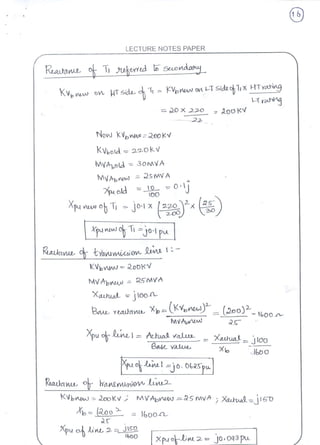 16
LECTURE NOTES PAPER
Reactance of T1 referred to secondary
KVb new on HT side of T1 = KVb new on LT side of T1 x HT rating
LT rating
= 20 x 220 = 200KV
22
Now KVb new = 200KV
KVb old = 220KV
MVAb old = 30MVA
MVAb new = 25MVA
Xpu old = 10 = 0.1j
100
Xpu new of T1 = j0.1 x (220/200)² x (25/30)
Xpu new of T1 = j0.1 pu
Reactance of transmission line 1 :-
KVb new = 200KV
MVAb new = 25MVA
Xactual = j100Ω
Base reactance Xb = (KVb new)² = (200)² = 1600Ω
MVAb new 25
Xpu of line 1 = Actual value = Xactual = j100
Base value Xb 1600
Xpu of line 1 = j0.0625pu
Reactance of transmission line 2
KVb new = 200KV ; MVAb new = 25MVA ; Xactual = j150
Xb = (200)² = 1600Ω
25
Xpu of line 2 = j150
1600
Xpu of line 2 = j0.093pu